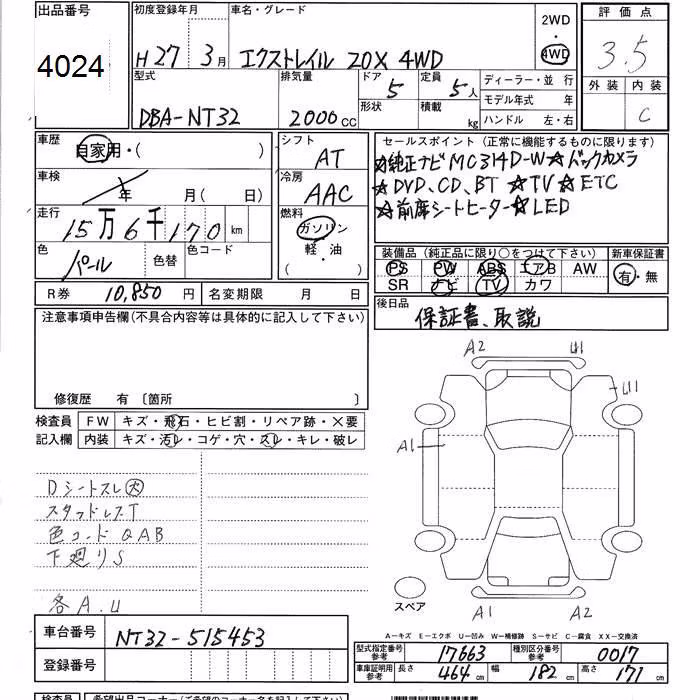 出品番号 初度登録年月 車名・グレード 2WD 評価点
4024 H27年 3月 エクストレイル 20X 4WD 4WD 3.5
型式 排気量 ドア 5 定員 5人 ディーラー・並 行 外装 内装
形状 積載 kg モデル年式 年 C
DBA-NT32 2000cc ハンドル 左・右
車歴 自家用・( ) シフト AT セールスポイント (正常に機能するものに限ります)
☆純正ナビMC314D-W☆バックカメラ
車検 年 月( 日) 冷房 AAC ☆DVD、CD、BT ☆TV☆ETC
走行 15万6千170km 燃料 ガソリン ☆前席シートヒーター☆LED
軽・油
( )
色 パール 色替 色コード 装備品 (純正品に限り○をつけて下さい) 新車保証書
PS PW ABS エアB AW 有・無
R券 10,850円 名変期限 月 日 SR ナビ TV カワ
注意事項申告欄(不具合内容等は具体的に記入して下さい) 後日品
保証書、取説
修復歴 有 〔箇所
検査員 FW キズ・飛石・ヒビ割・リペア跡・×要
記入欄 内装 キズ・汚レ・コゲ・穴・スレ・キレ・破レ
A2 U1
U1
A1
Dシートスレ大
スタッドレスT
色コードQAB
下廻りS
各A.U
スペア
A1 A2
A-キズ E-エクボ U-凹み W-補修跡 S-サビ C-腐食 XX-交換済
車台番号 NT32-515453
型式指定番号 参考 17663 種別区分番号 参考 0017
登録番号
車庫証明用 参考 長さ 464cm 幅 182cm 高さ 171cm
検査員 希望出品コーナー(ご希望のコーナー名を記入下さい)